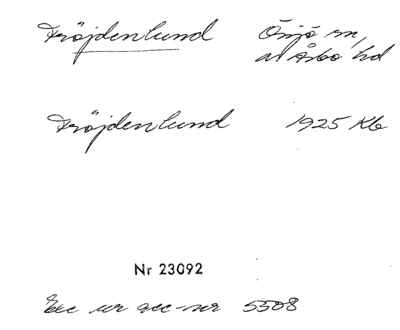 Fröjdenlund Össjö sn,
N Åsbo hd
Fröjdenlund 1925 Kb
Nr 23092
Exc ur acc-nr 5508